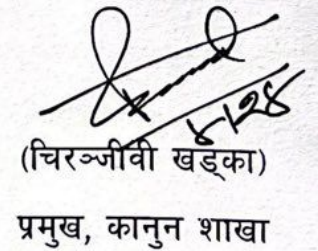 (चिरञ्जीवी खड्का)
प्रमुख, कानुन शाखा